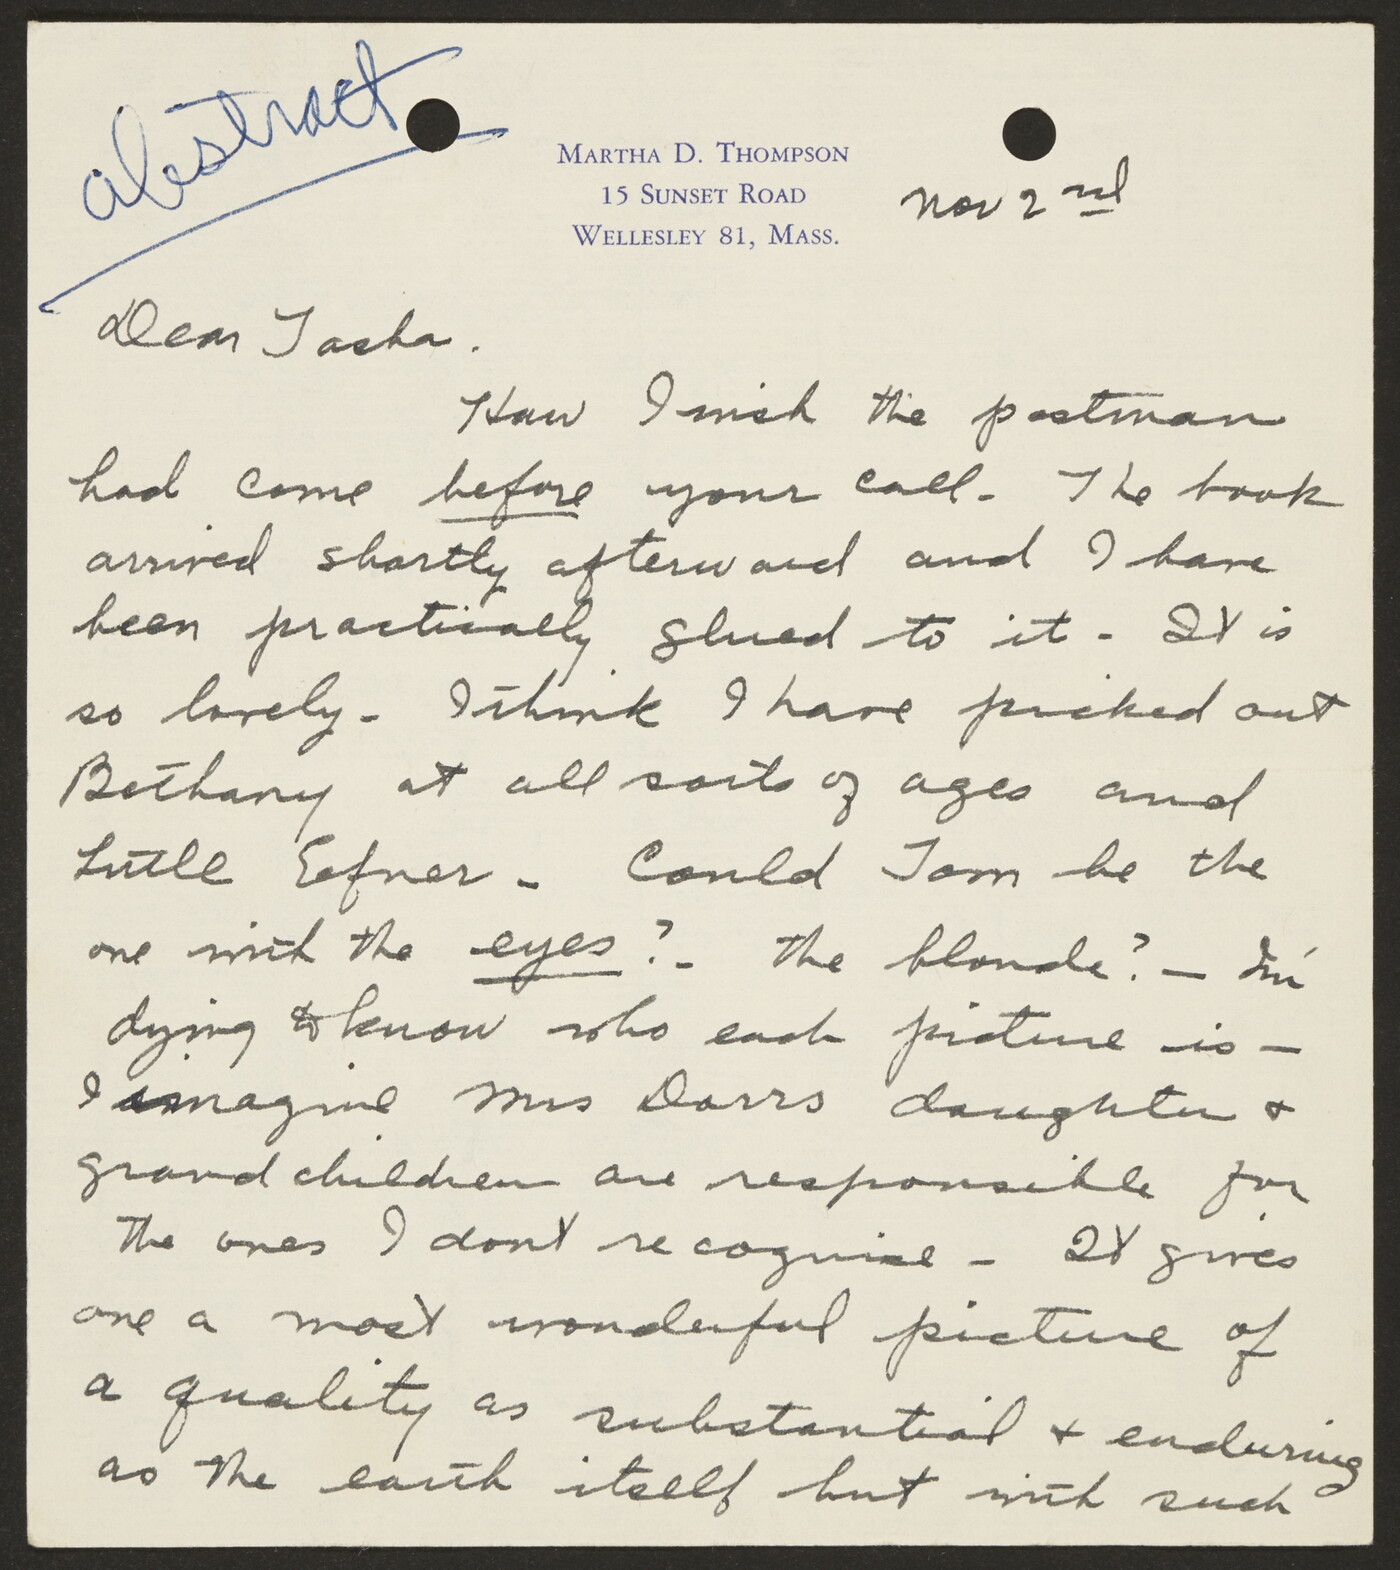 abstract
MARTHA D. THOMPSON
15 SUNSET ROAD
WELLESLEY 81, MASS.
Nov 2nd
Dear Tasha.
How I wish the postman
had come before your call. The book
arrived shortly afterward and I have
been practically glued to it - It is
so lovely - I think I have picked out
Bethany at all sorts of ages and
little Efner - Could Tom be the
one with the eyes? - the blonde? - I'm
dying to know who each picture is -
I imagine Mrs Dorrs daughter &
grandchildren are responsible for
the ones I don't recognize - It gives
one a most wonderful picture of
a quality as substantial & enduring
as the earth itself but with such